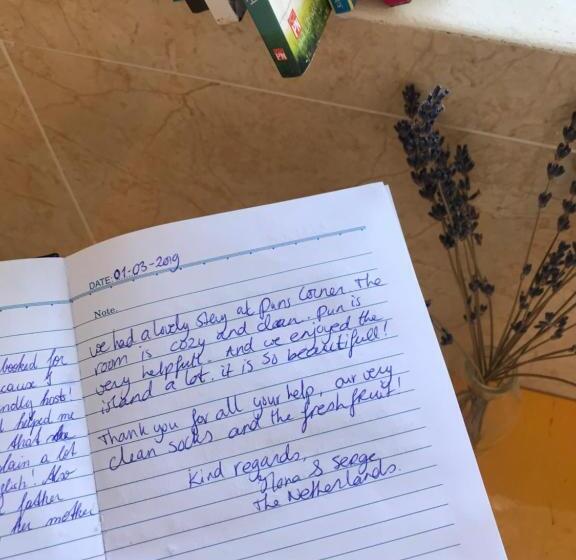 DATE: 01-03-2019
Note.
we had a lovely stay at Puns Corner The
room is cozy and clean. Pun is
very helpfull. And we enjoyed the
island a lot. it is so beautifull!
Thank you for all your help, our very
clean socks and the fresh fruit!
Kind regards,
Ilona & Serge
The Netherlands.
booked for
cause of
ndly hosts!
helped me
that
lain a lot
glish! Also
father
her mother